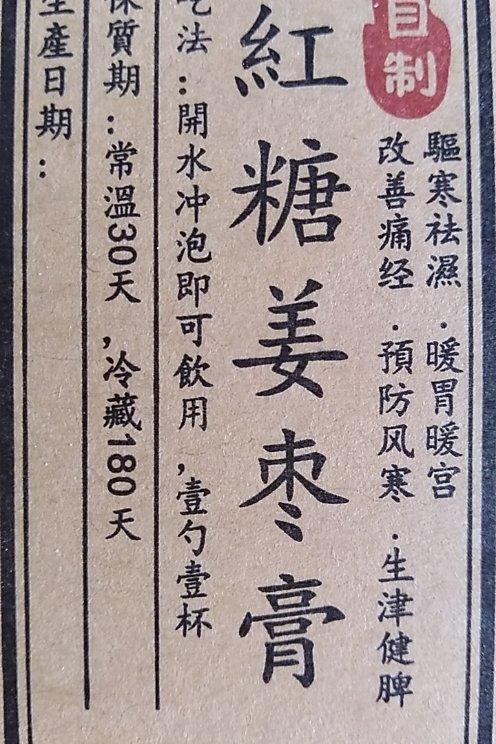 自制
驅寒祛濕·暖胃暖宫
改善痛经·預防风寒·生津健脾
紅糖姜枣膏
吃法:開水冲泡即可飲用,壹勺壹杯
保質期:常溫30天,冷藏180天
生產日期: